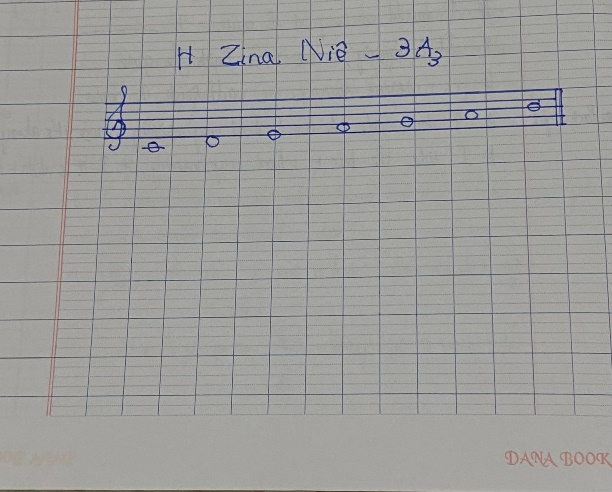 H Zina Niê - 3A3
DANA BOOK